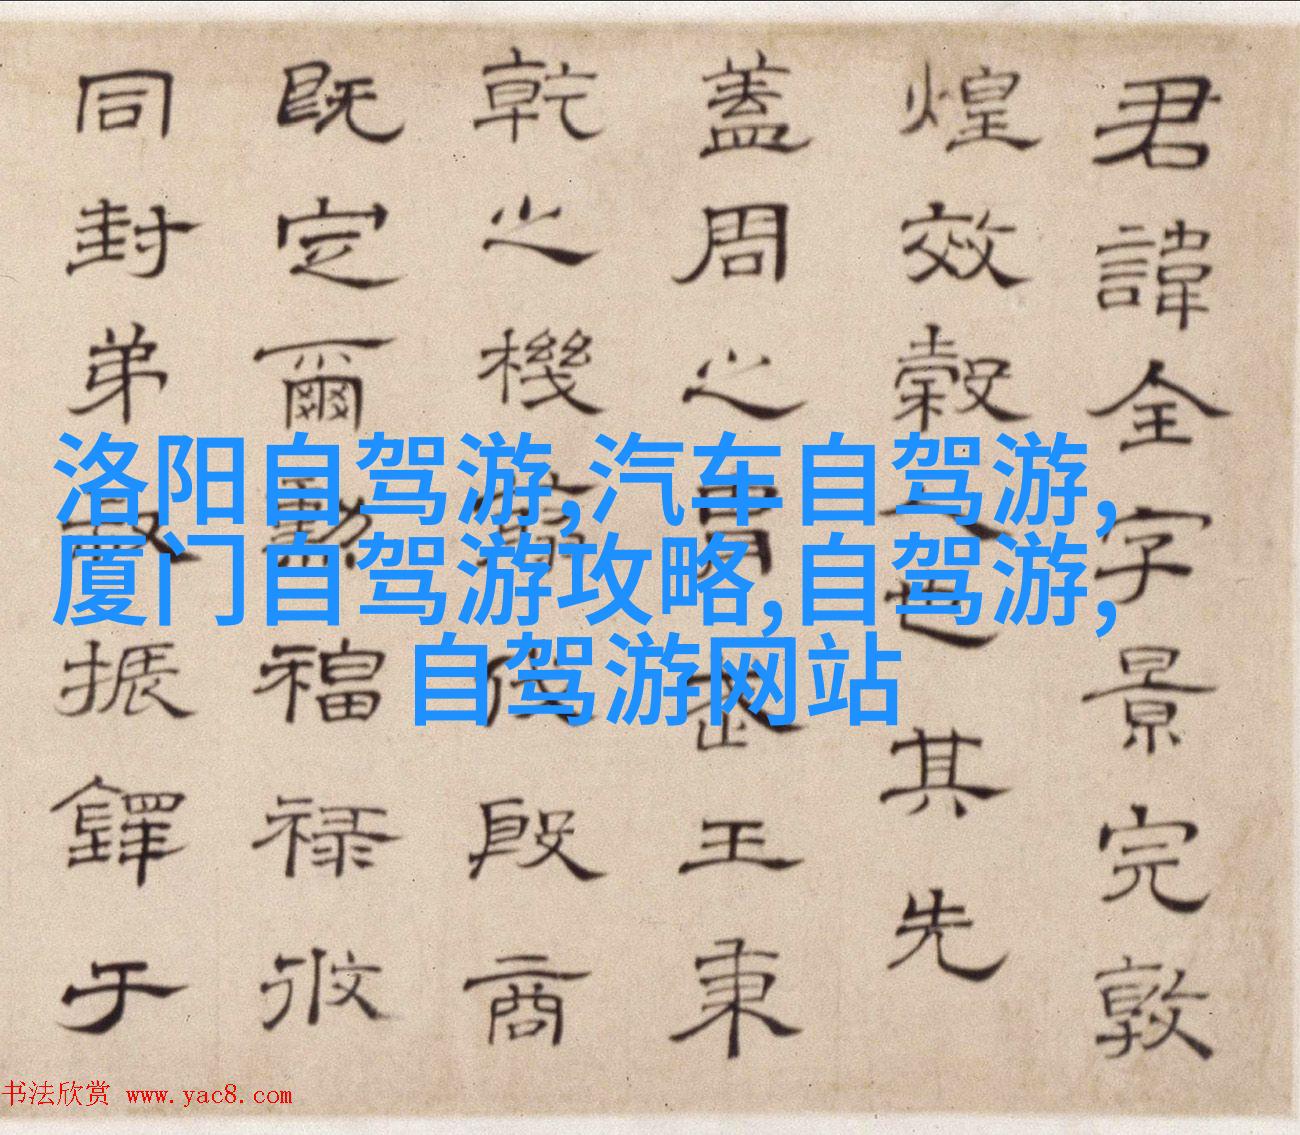 君諱全字景完敦
煌效穀人也其先
蓋周之胄武王秉
乾之機翦伐殷商
既定爾勳福禄攸
同封弟叔振鐸于
洛阳自驾游,汽车自驾游,
厦门自驾游攻略,自驾游,
自驾游网站
书法欣赏 www.yac8.com